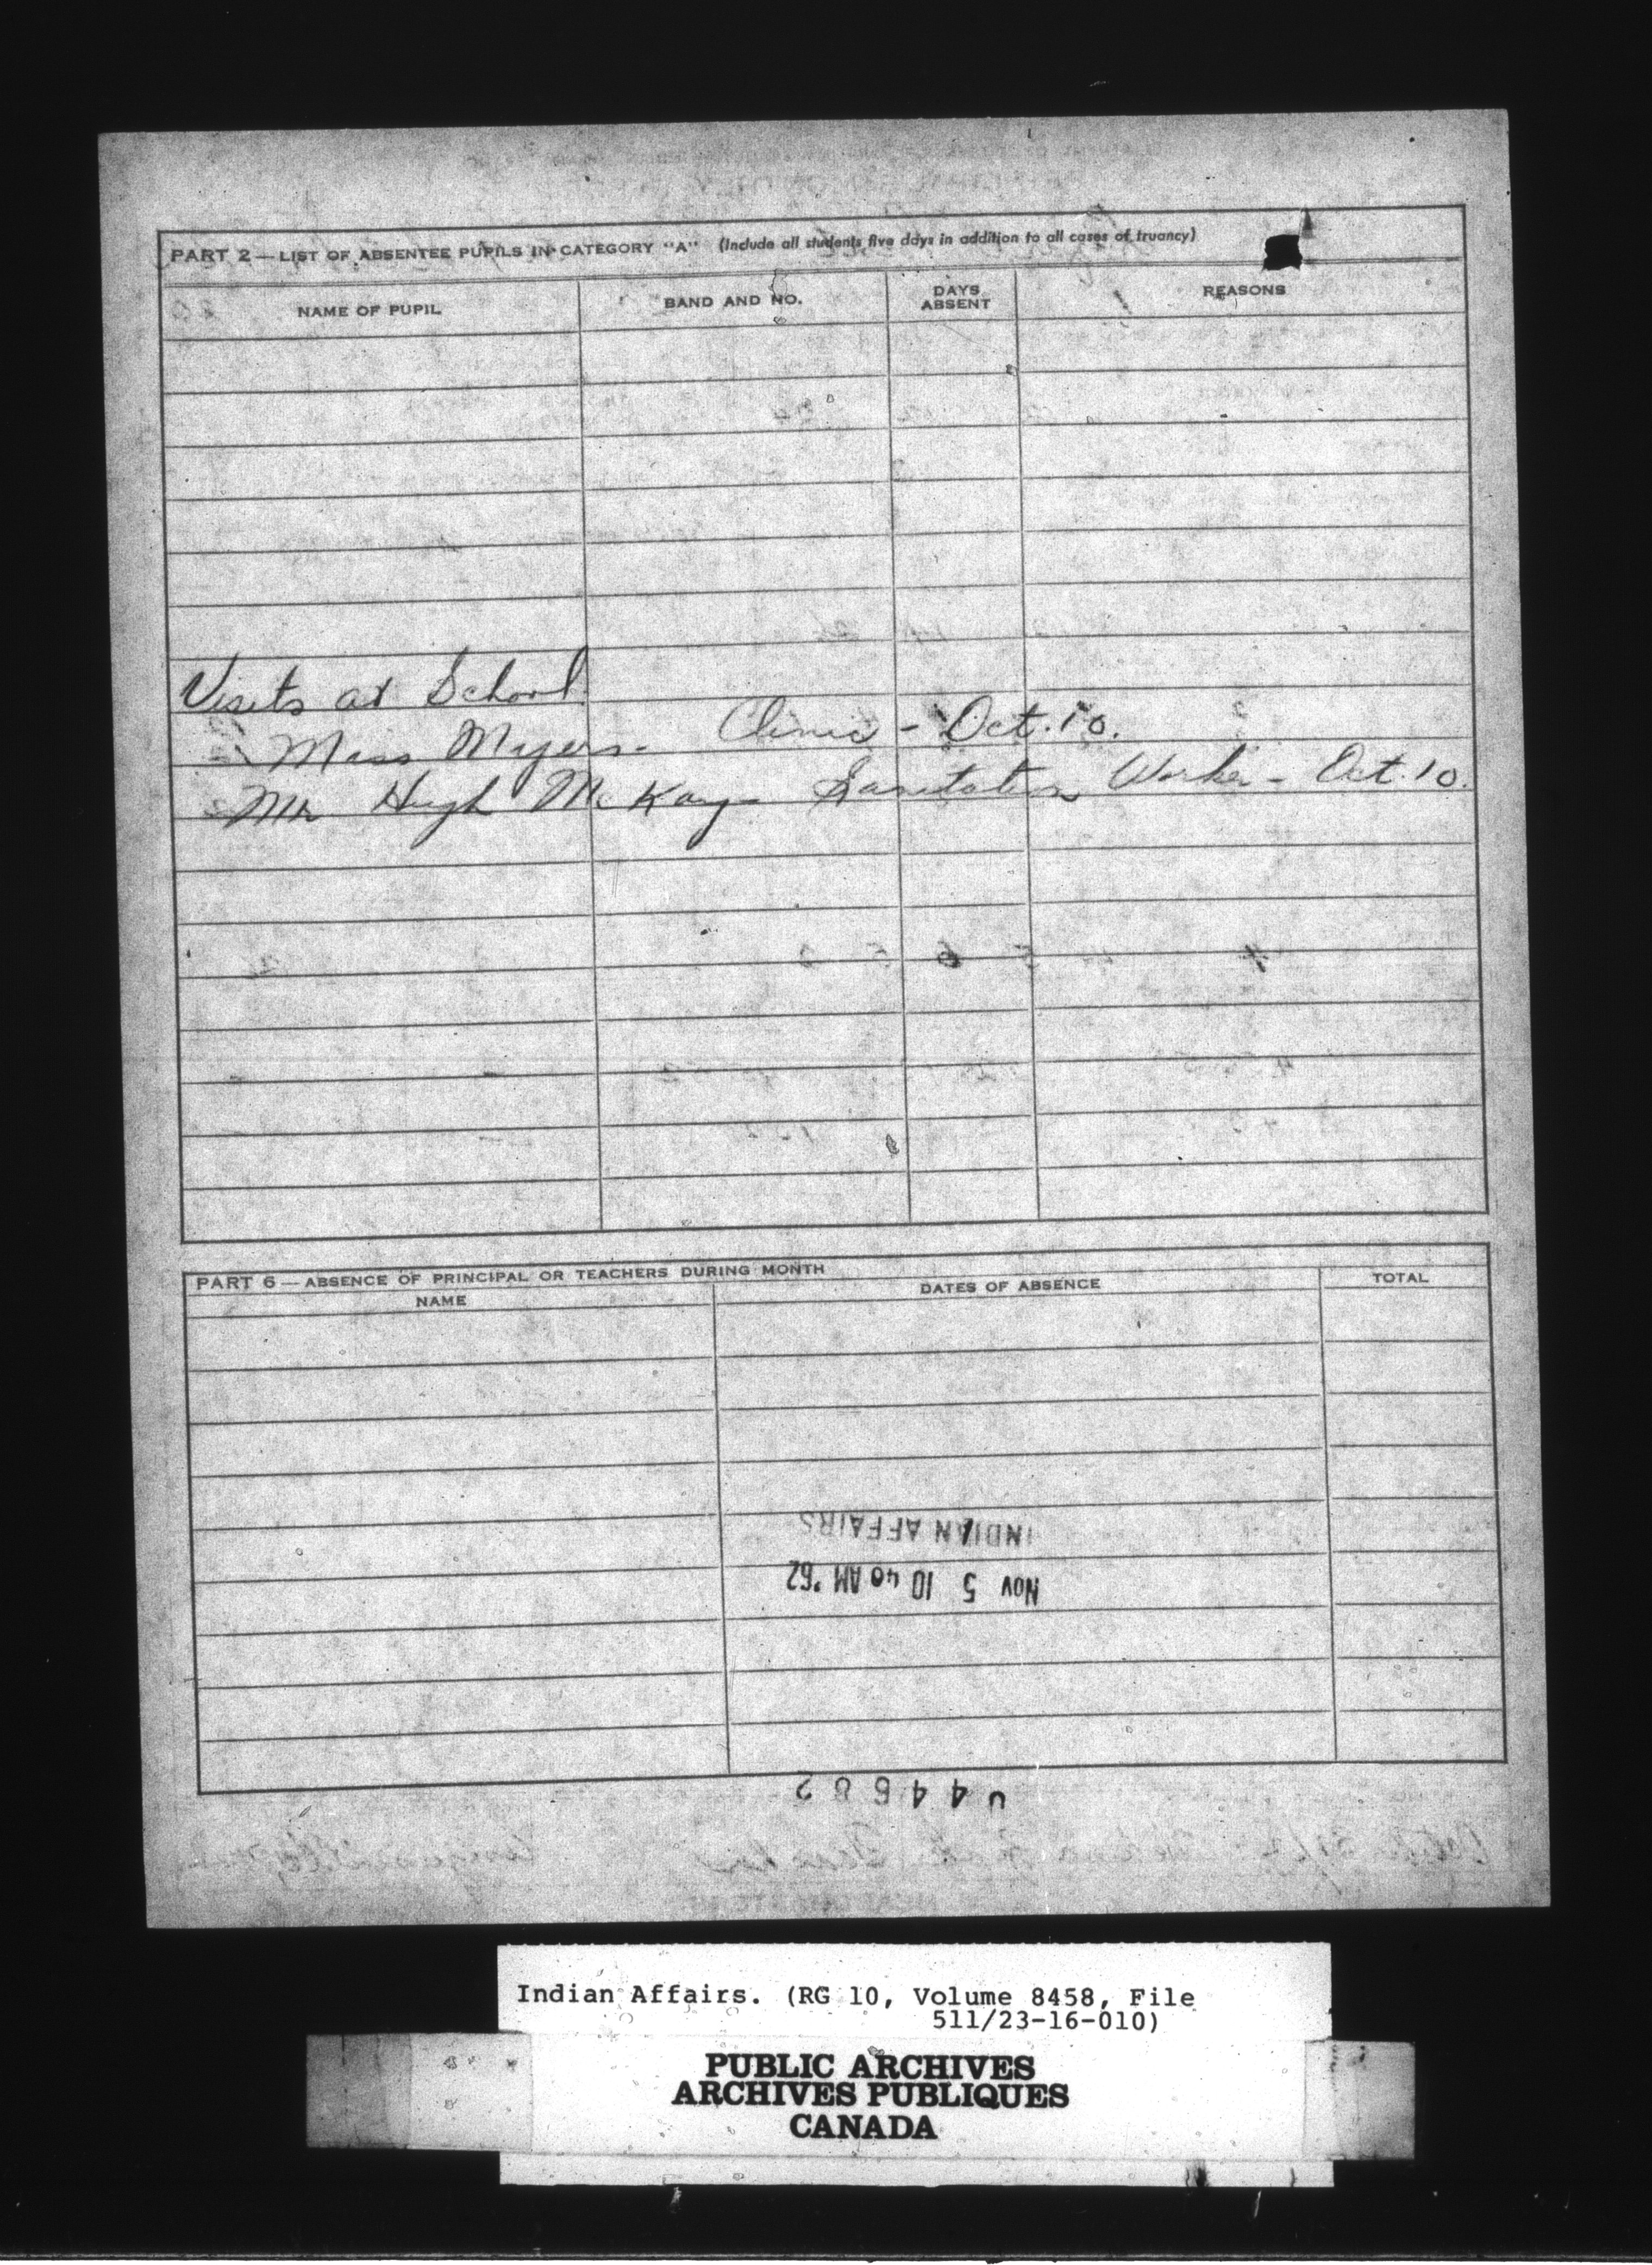 PART 2 — LIST OF ABSENTEE PUPILS IN CATEGORY "A" (Include all students five days in addition to all cases of truancy)
NAME OF PUPIL BAND AND NO. DAYS ABSENT REASONS
Visits at School
Miss Myers - Clinic - Oct. 10.
Mr Hugh McKay - Sanitation Worker - Oct. 10.
PART 6 — ABSENCE OF PRINCIPAL OR TEACHERS DURING MONTH
NAME DATES OF ABSENCE TOTAL
INDIAN AFFAIRS
NOV 5 10 40 AM '62
Indian Affairs. (RG 10, Volume 8458, File
511/23-16-010)
PUBLIC ARCHIVES
ARCHIVES PUBLIQUES
CANADA